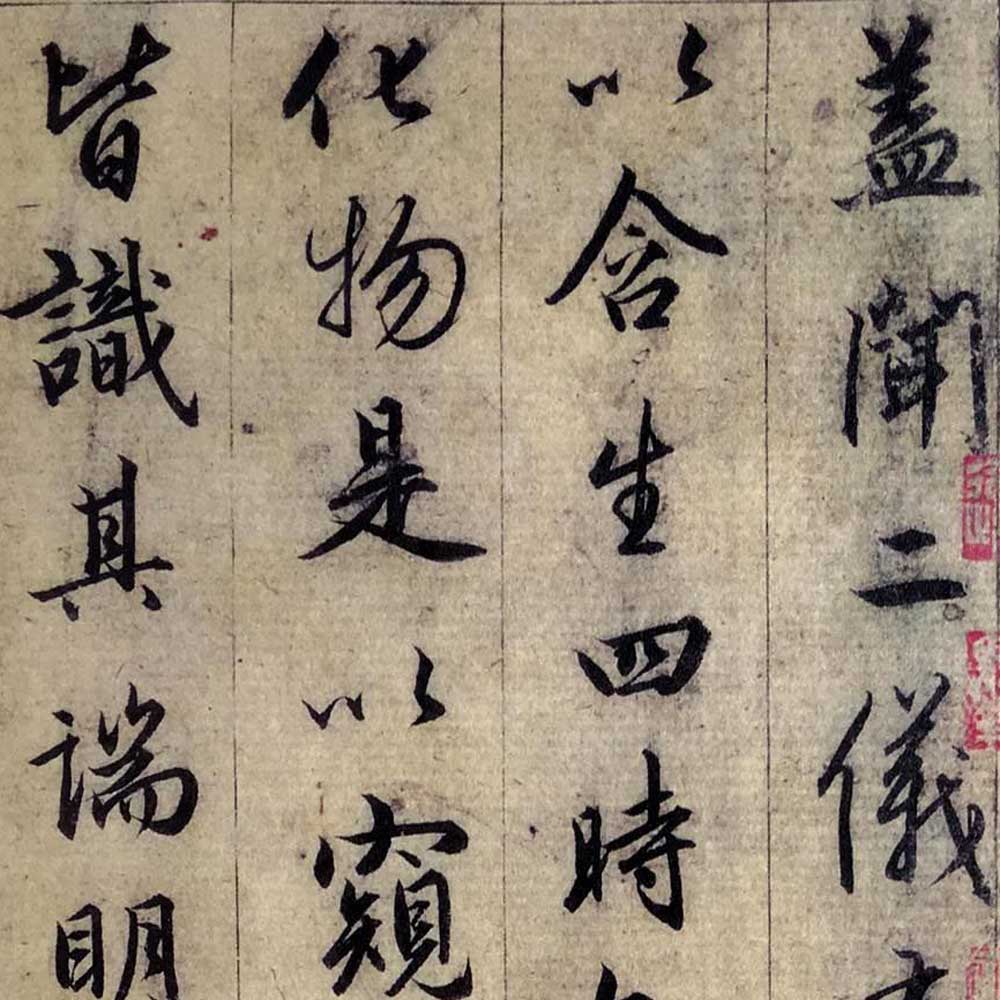 蓋聞二儀
以含生四時
化物是以窺
皆識其端明